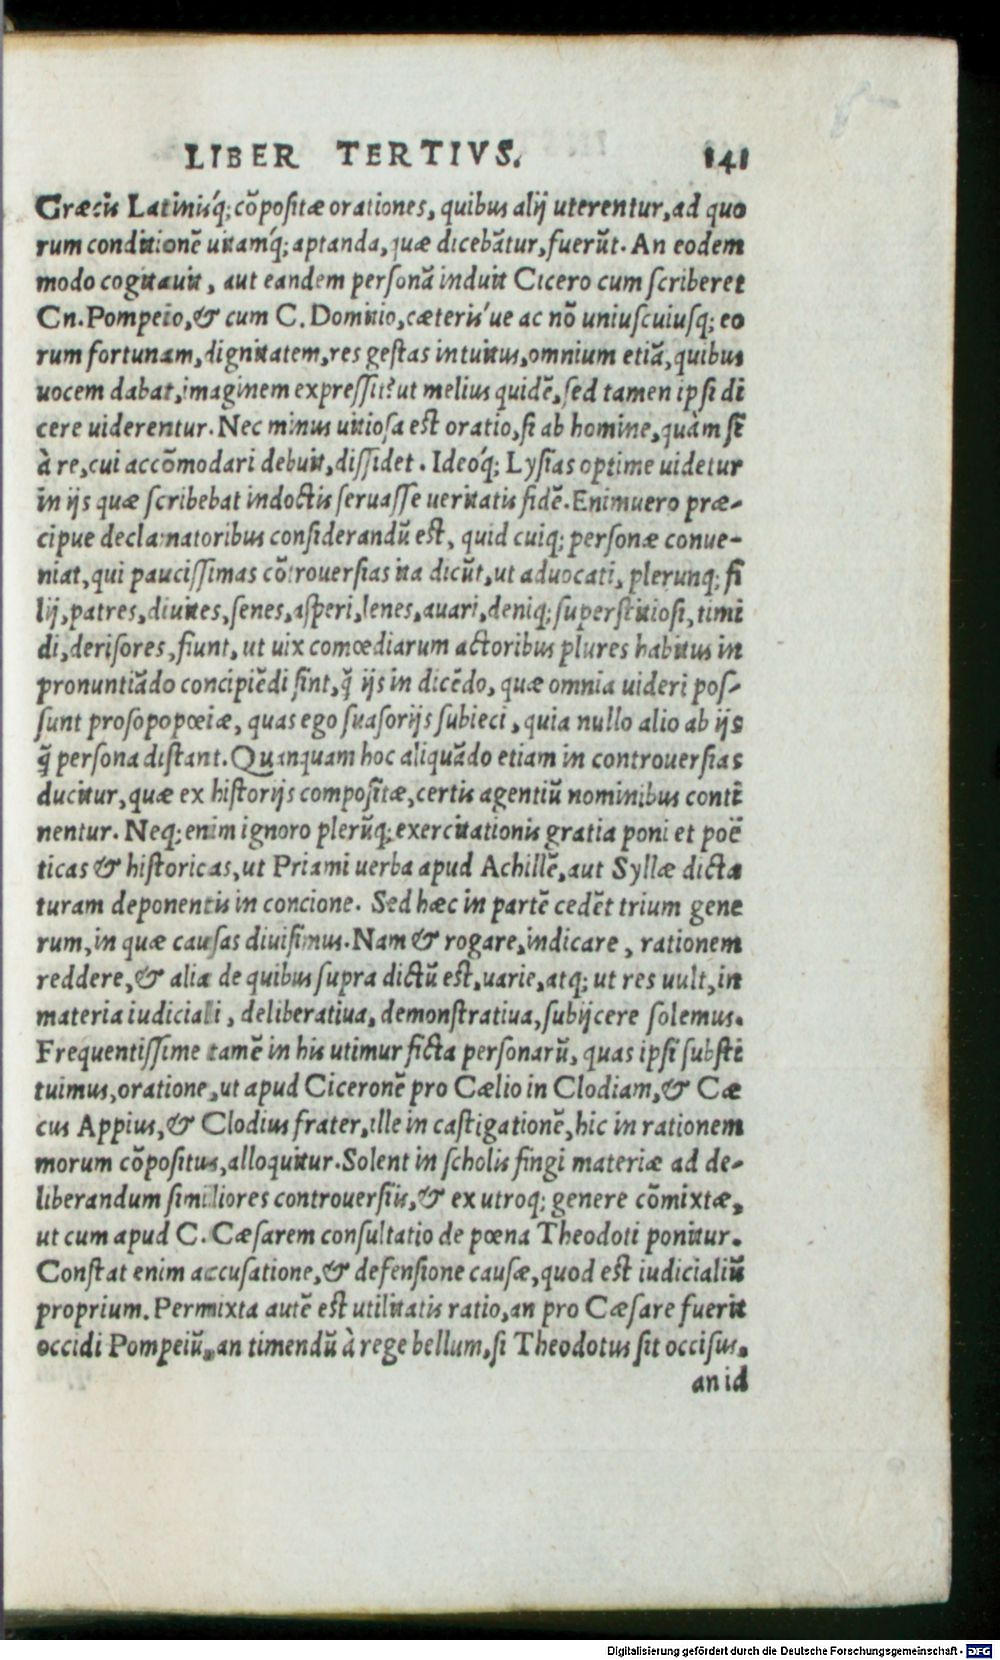 LIBER TERTIVS. 141
Græcis Latinisq́; cōpositæ orationes, quibus alij uterentur, ad quo
rum conditionē uitamq́; aptanda, quæ dicebātur, fuerūt. An eodem
modo cogitauit, aut eandem personā induit Cicero cum scriberet
Cn. Pompeio, & cum C. Domitio, cæteris´ue ac nō uniuscuiusq; eo
rum fortunam, dignitatem, res gestas intuitus, omnium etiā, quibus
uocem dabat, imaginem expressit? ut melius quidē, sed tamen ipsi di
cere uiderentur. Nec minus uitiosa est oratio, si ab homine, quàm si
à re, cui accōmodari debuit, dissidet. Ideoq́; Lysias optime uidetur
in ijs quæ scribebat indoctis seruasse ueritatis fidē. Enimuero præ-
cipue declamatoribus considerandū est, quid cuiq; personæ conue-
niat, qui paucissimas cōtrouersias ita dicūt, ut aduocati, plerunq; fi
lij, patres, diuites, senes, asperi, lenes, auari, deniq; superstitiosi, timi
di, derisores, fiunt, ut uix comœdiarum actoribus plures habitus in
pronuntiādo concipiēdi sint, q̄̃ ijs in dicēdo, quæ omnia uideri pos-
sunt prosopopœiæ, quas ego suasorijs subieci, quia nullo alio ab ijs
q̄̃ persona distant. Quanquam hoc aliquādo etiam in controuersias
ducitur, quæ ex historijs compositæ, certis agentiū nominibus conti
nentur. Neq; enim ignoro plerūq; exercitationis gratia poni et poē
ticas & historicas, ut Priami uerba apud Achillē, aut Syllæ dicta
turam deponentis in concione. Sed hæc in partē cedēt trium gene
rum, in quæ causas diuisimus. Nam & rogare, indicare, rationem
reddere, & alia de quibus supra dictū est, uarie, atq; ut res uult, in
materia iudiciali, deliberatiua, demonstratiua, subijcere solemus.
Frequentissime tamē in his utimur ficta personarū, quas ipsi substi
tuimus, oratione, ut apud Ciceronē pro Cælio in Clodiam, & Cæ
cus Appius, & Clodius frater, ille in castigationē, hic in rationem
morum cōpositus, alloquitur. Solent in scholis fingi materiæ ad de-
liberandum similiores controuersiis, & ex utroq; genere cōmixtæ,
ut cum apud C. Cæsarem consultatio de pœna Theodoti ponitur.
Constat enim accusatione, & defensione causæ, quod est iudicialiū
proprium. Permixta autē est utilitatis ratio, an pro Cæsare fuerit
occidi Pompeiū, an timendū à rege bellum, si Theodotus sit occisus.
an id
Digitalisierung gefördert durch die Deutsche Forschungsgemeinschaft - DFG